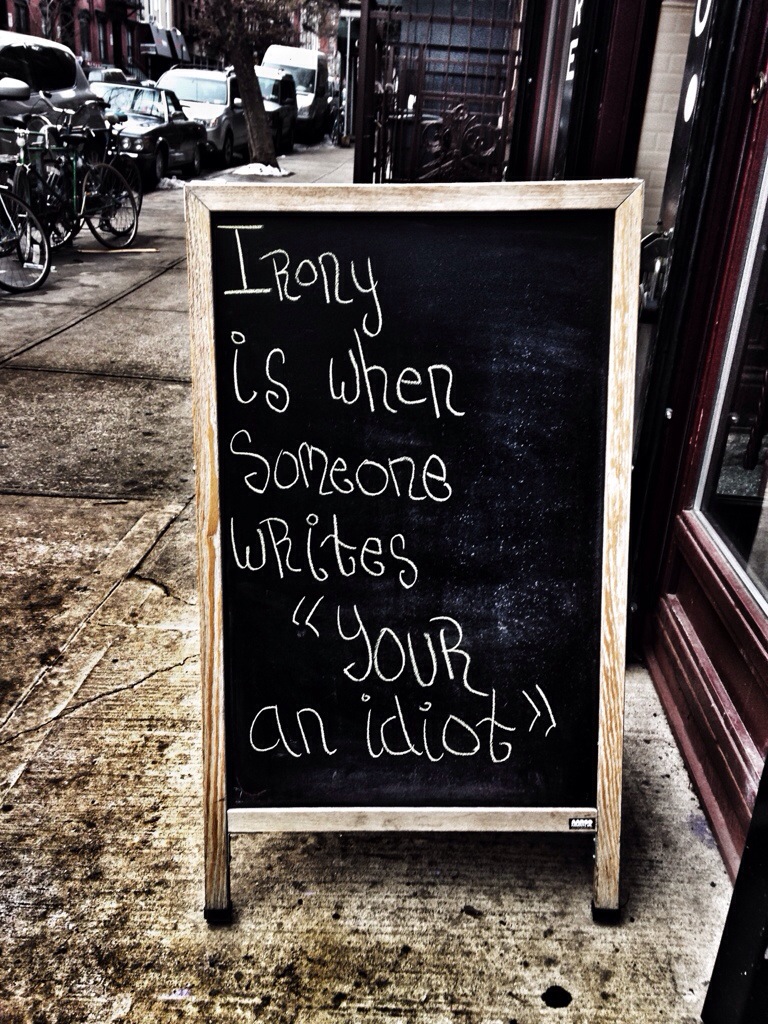 Irony
is when
Someone
writes
"your
an idiot"